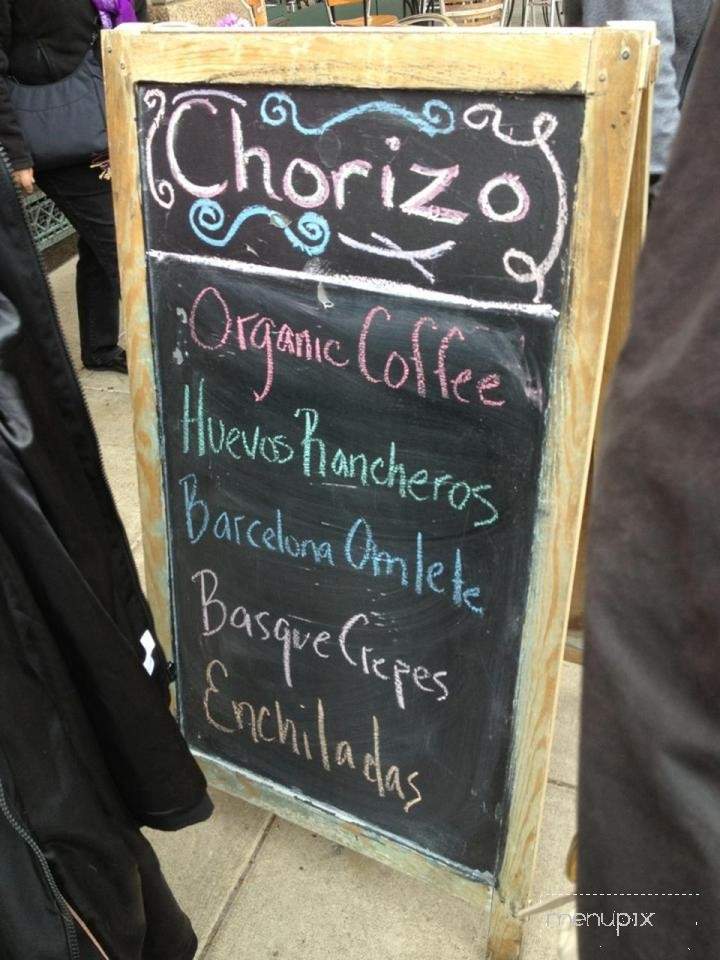 Chorizo
Organic Coffee
Huevos Rancheros
Barcelona Omlete
Basque Crepes
Enchiladas
menupix